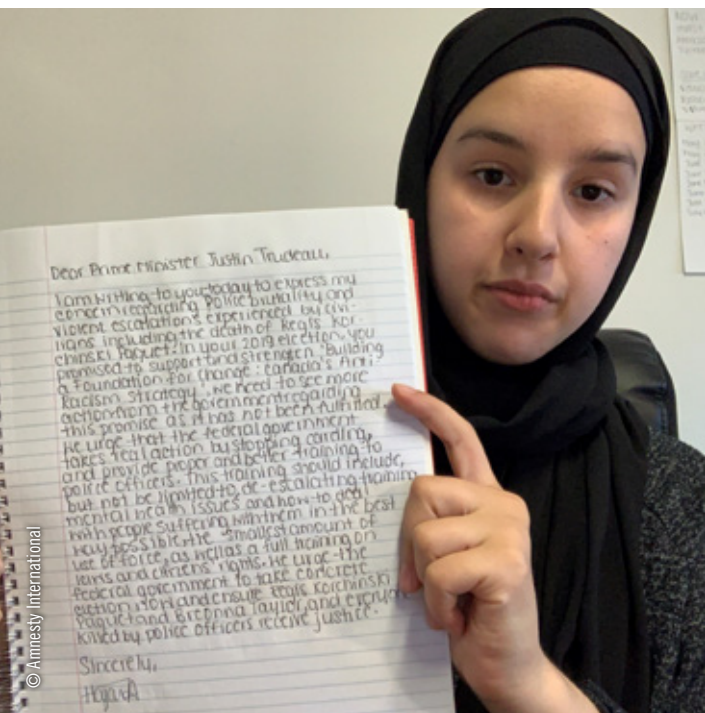 Dear Prime Minister Justin Trudeau,
I am writing to you today to express my
concern regarding Police brutality and
violent escalations experienced by civi-
lians including the death of Regis Kor-
chinski Paquet. In your 2019 election, you
promised to support and strengen "Building
a Foundation for Change: Canada's Anti-
Racism strategy", we need to see more
action from the government regarding
this promise as it has not been fulfilled.
We urge that the federal government
takes real action by stopping carding,
and provide proper and better training to
police officers. This training should include,
but not be limited to, de-escalating training
mental health issues and how to deal
with people suffering with them in the best
way possible, the smallest amount of
use of force, as well as a full training on
laws and citizens' rights. We urge the
federal government to take concrete
action now and ensure Regis Korchinski
Paquet and Breonna Taylor, and everyon
killed by police officers receive justice.
Sincerely,
© Amnesty International